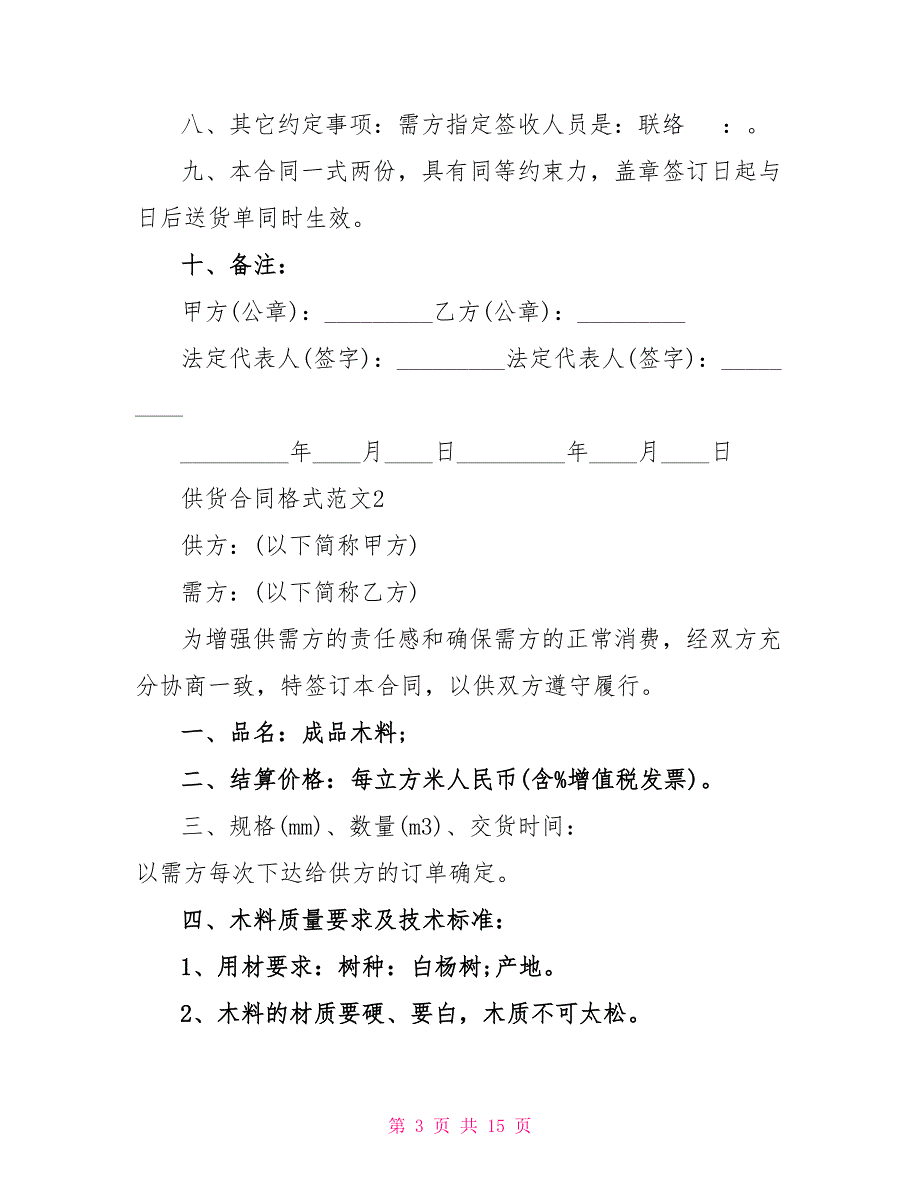 八、其它约定事项：需方指定签收人员是：联络　：。
九、本合同一式两份，具有同等约束力，盖章签订日起与
日后送货单同时生效。
十、备注：
甲方(公章)：_________乙方(公章)：_________
法定代表人(签字)：_________法定代表人(签字)：_____
____
_________年____月____日_________年____月____日
供货合同格式范文2
供方：(以下简称甲方)
需方：(以下简称乙方)
为增强供需方的责任感和确保需方的正常消费，经双方充
分协商一致，特签订本合同，以供双方遵守履行。
一、品名：成品木料;
二、结算价格：每立方米人民币(含%增值税发票)。
三、规格(mm)、数量(m3)、交货时间：
以需方每次下达给供方的订单确定。
四、木料质量要求及技术标准：
1、用材要求：树种：白杨树;产地。
2、木料的材质要硬、要白，木质不可太松。
第 3 页 共 15 页